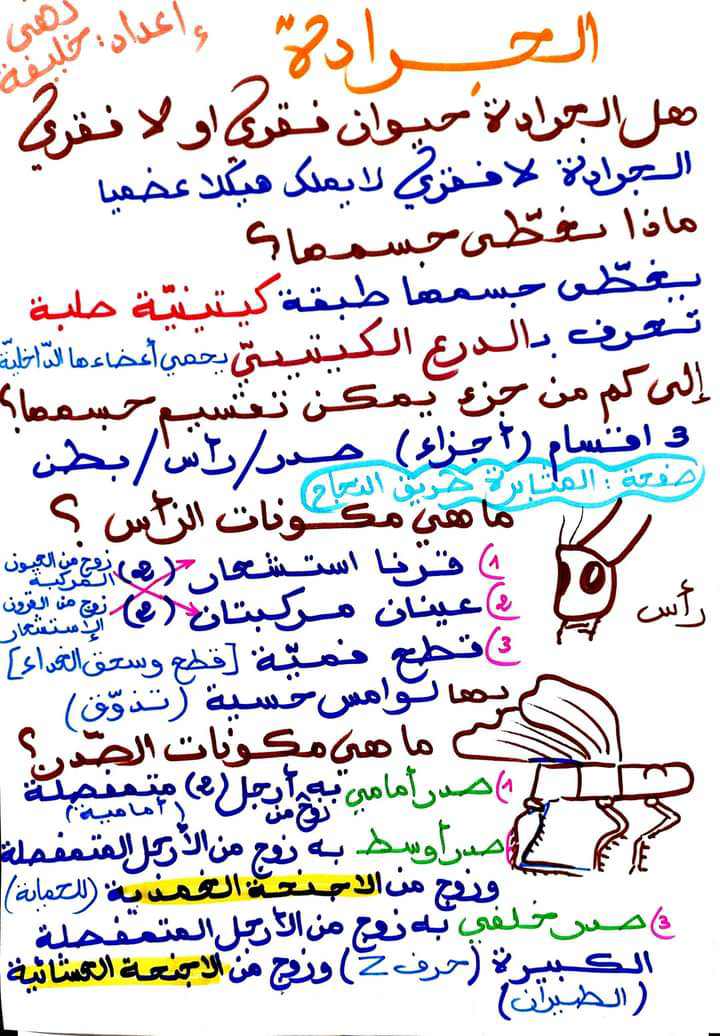 إعداد: ذهبي خليفة
الجرادة
هل الجرادة حيوان فقري او لا فقري
الجرادة لا فقري لا يملك هيكلا عضميا
ماذا يغطّي جسمها؟
يغطّي جسمها طبقة كيتينيّة صلبة
تعرف بالدرع الكيتيني يحمي أعضاءها الدّاخليّة
إلى كم من جزء يمكن تقسيم جسمها؟
3 اقسام (أجزاء) صدر/رأس/بطن
صفحة: المثابرة طريق النجاح
ما هي مكونات الرأس؟
1) قرنا استشعار (2) زوج من العيون المركبة
2) عينان مركبتان (2) زوج من القرون الإستشعار
رأس
3) قطع فميّة [قطع وسحق الغذاء]
بها لوامس حسية (تذوّق)
ما هي مكونات الصّدر؟
1) صدر أمامي به زوج من أرجل (2) متمفصلة (أمامية)
صدر أوسط به زوج من الأرجل المتمفصلة
وزوج من الاجنحة الغمدية (للحماية)
3) صدر خلفي به زوج من الأرجل المتمفصلة
الكبيرة (حرف Z) وزوج من الاجنحة الغشائية
(الطيران)